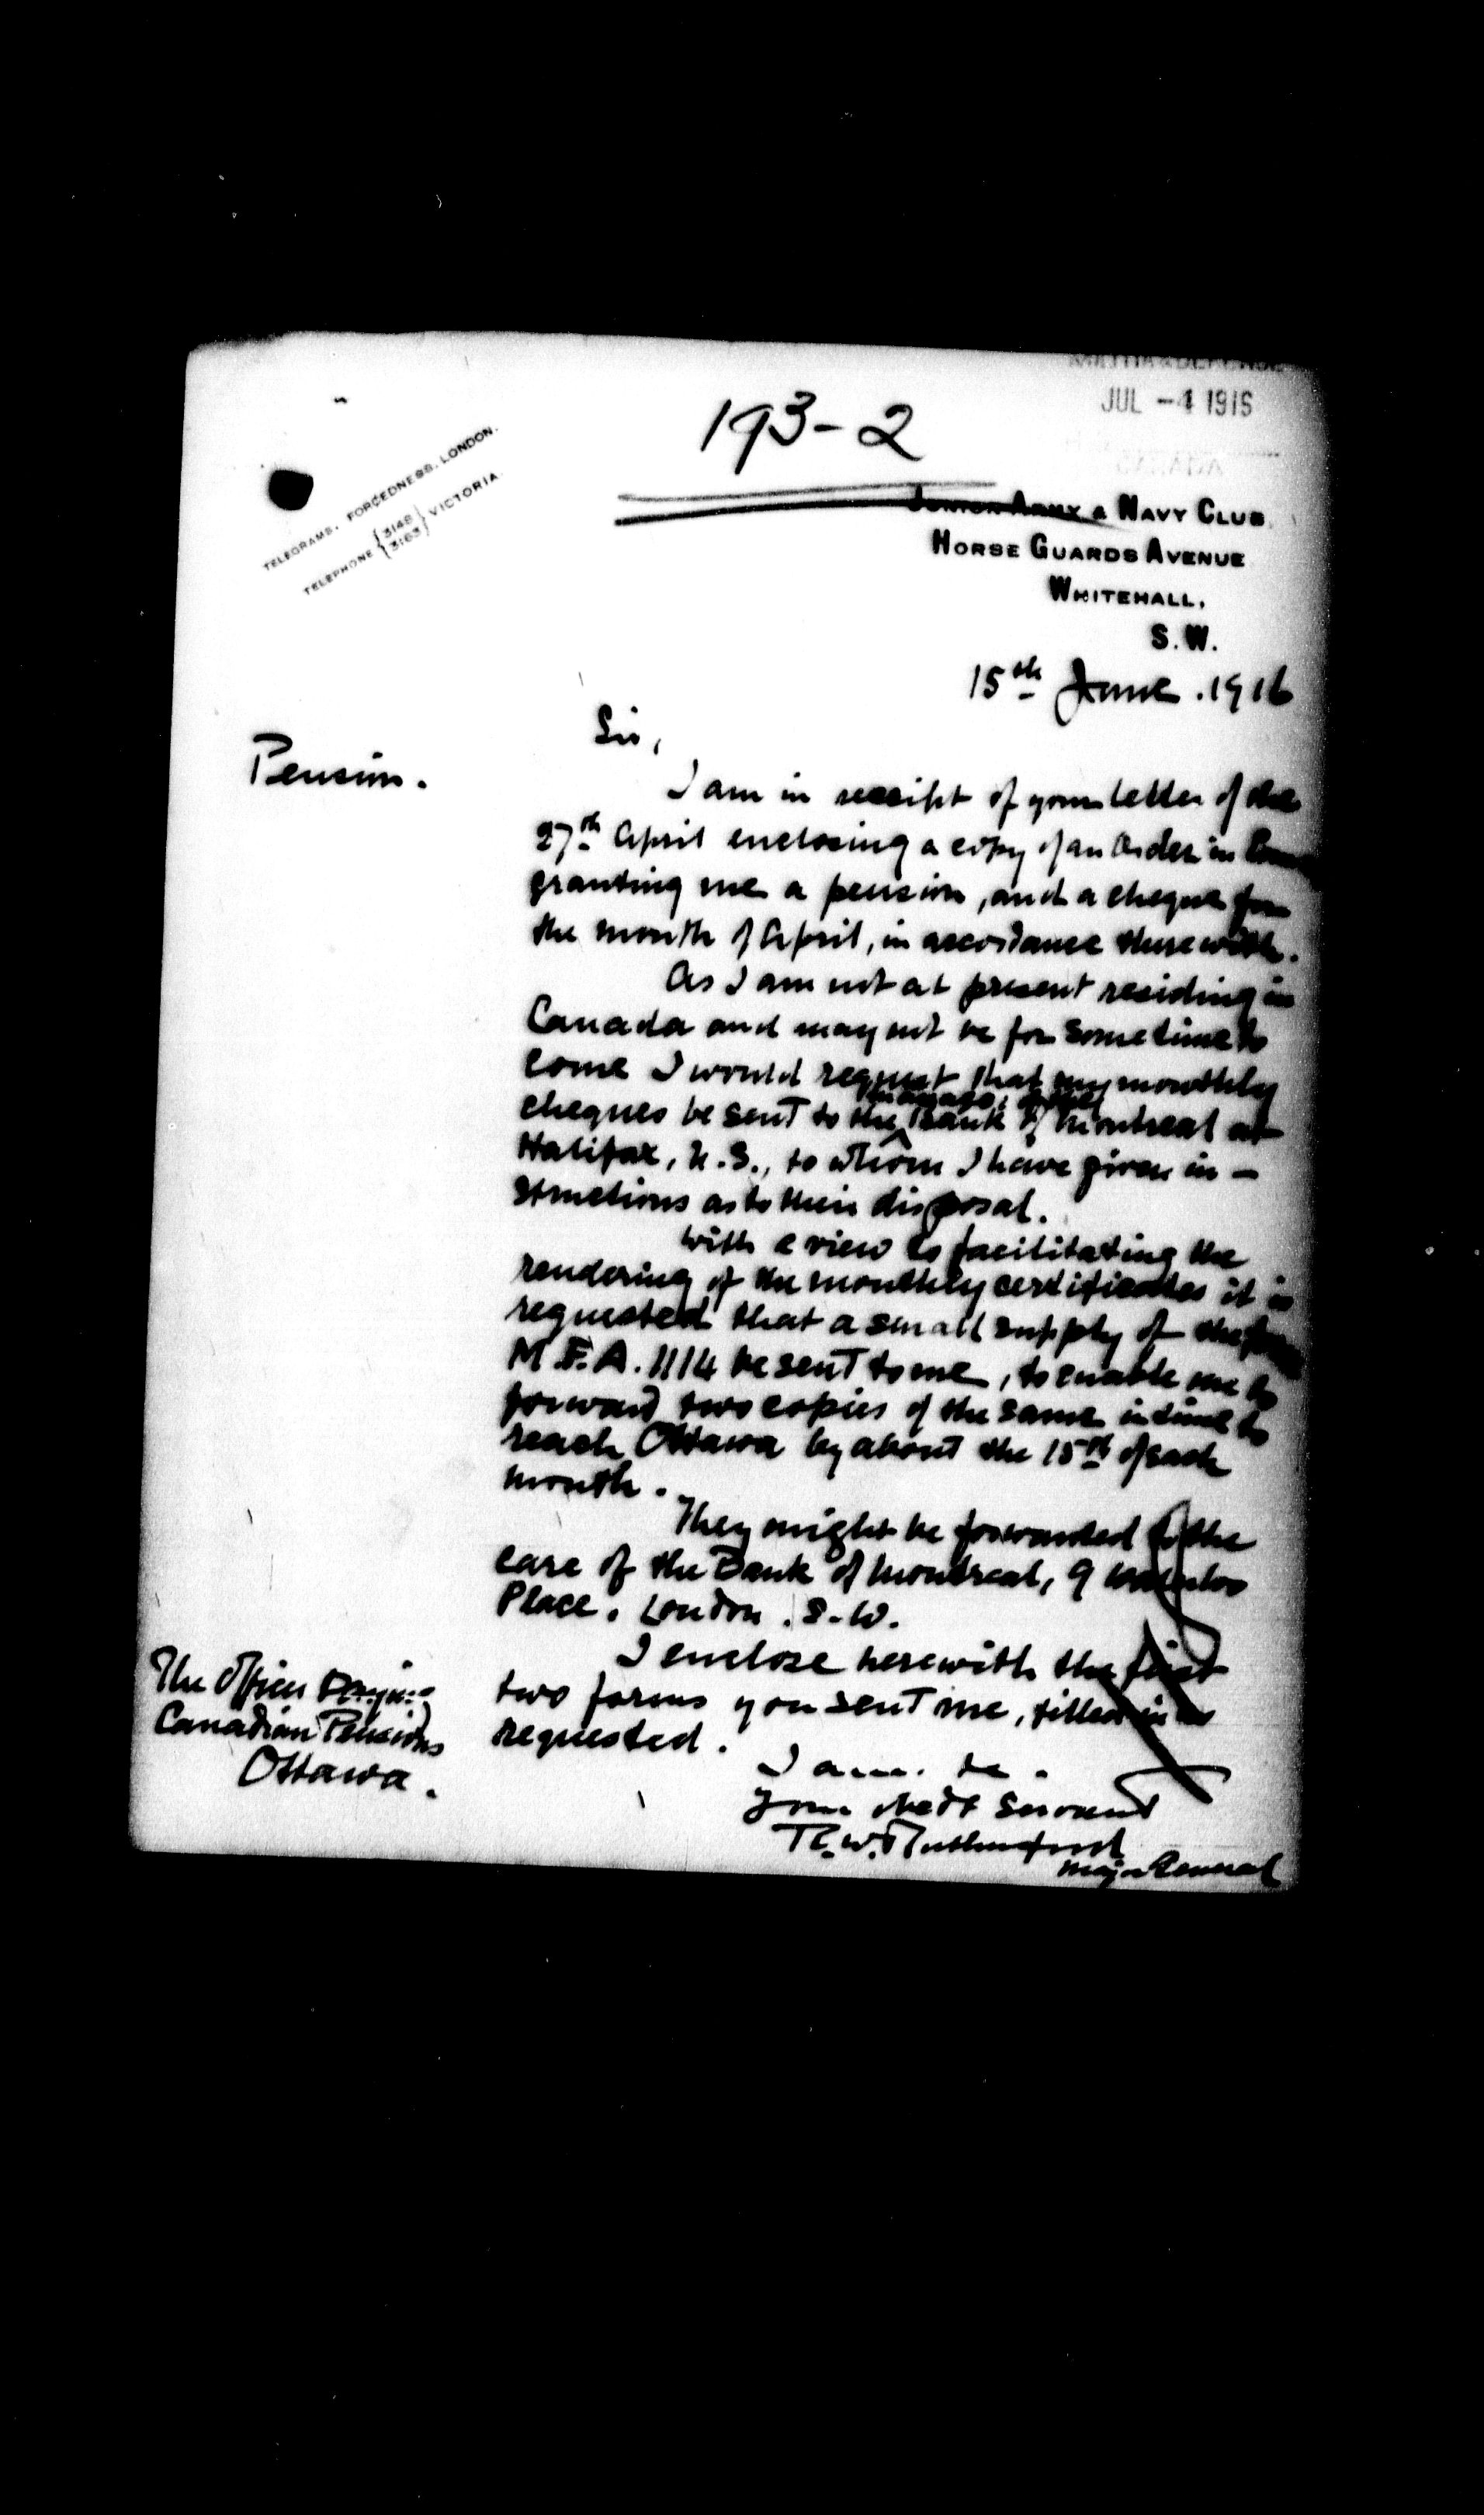 MILITIA & DEFENCE
JUL -4 1916
CANADA
193-2
TELEGRAMS. FORCEDNESS. LONDON.
TELEPHONE {3148 3163} VICTORIA.
JUNIOR ARMY & NAVY CLUB.
HORSE GUARDS AVENUE
WHITEHALL,
S.W.
15th June. 1916
Sir,
Pension.
I am in receipt of your letter of the
27th April enclosing a copy of an Order in
granting me a pension, and a cheque for
the month of April, in accordance therewith.
As I am not at present residing in
Canada and may not be for some time to
come I would request that my monthly
manager,
cheques be sent to the Bank of Montreal at
Halifax, N.S., to whom I have given in-
structions as to their disposal.
With a view to facilitating the
rendering of the monthly certificates it is
requested that a small supply of the form
M.F.A. 1114 be sent to me, to enable me to
forward two copies of the same in time to
reach Ottawa by about the 15th of each
month.
They might be forwarded to the
care of the Bank of Montreal, 9 Waterloo
Place. London. S.W.
I enclose herewith the first
two forms you sent me, filled in as
requested.
The Officer Paying
Canadian Pensions
Ottawa.
I am. &c.
Your obedt Servant
R.W. Rutherford
Major General